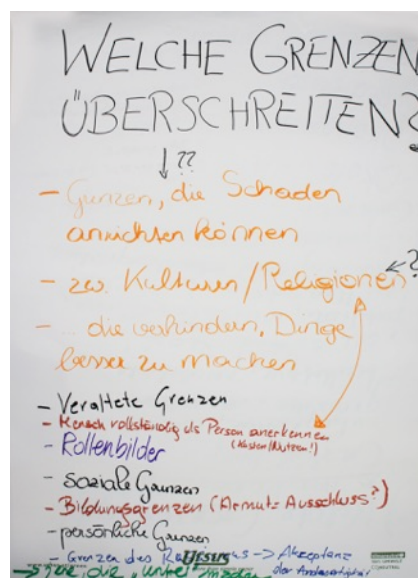 WELCHE GRENZEN
ÜBERSCHREITEN?
↓ ??
- Grenzen, die Schaden
anrichten können
- zw. Kulturen/Religionen ← ?
- ... die verhindern, Dinge
besser zu machen
- Veraltete Grenzen
- Mensch vollständig als Person anerkennen
(Kosten/Nutzen!)
- Rollenbilder
- soziale Grenzen
- Bildungsgrenzen (Armut = Ausschluss?)
- persönliche Grenzen
- Grenzen des → Akzeptanz
der Andersartigkeit
die "unter"